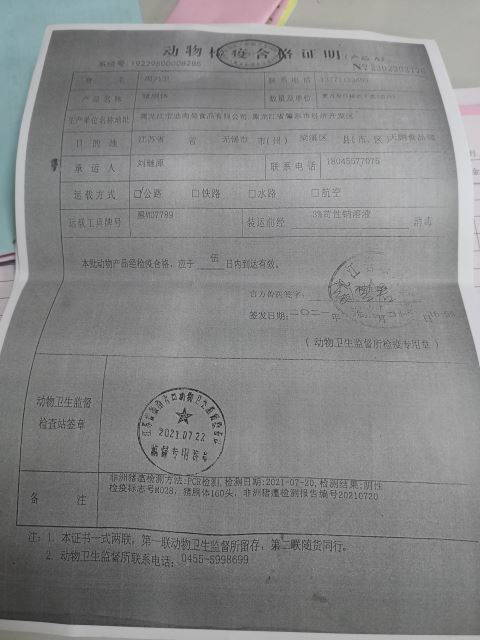 动物检疫合格证明（产品A）
系统号 19229600006286
No 2302303176
货主
联系电话
产品名称 猪胴体
数量及单位
生产单位名称地址 黑龙江省肇东市经济开发区
目的地 江苏省 省 无锡市 市(州) 梁溪区 县(市、区) 天鹏食品城
承运人 刘继原
联系电话 18045577075
运载方式 ☑公路 □铁路 □水路 □航空
运载工具牌号 黑M07789
装运前经 3%苛性钠溶液 消毒
本批动物产品经检疫合格，应于 伍 日内到达有效。
官方兽医签字：
签发日期：二〇二一年
（动物卫生监督所检疫专用章）
动物卫生监督
检查站签章
2021.07.22
备注
非洲猪瘟检测方法:PCR检测,检测日期:2021-07-20,检测结果:阴性
检疫标志号K028, 猪胴体160头, 非洲猪瘟检测报告编号20210720
注：1. 本证书一式两联，第一联动物卫生监督所留存，第二联随货同行。
2. 动物卫生监督所联系电话：0455-5998699